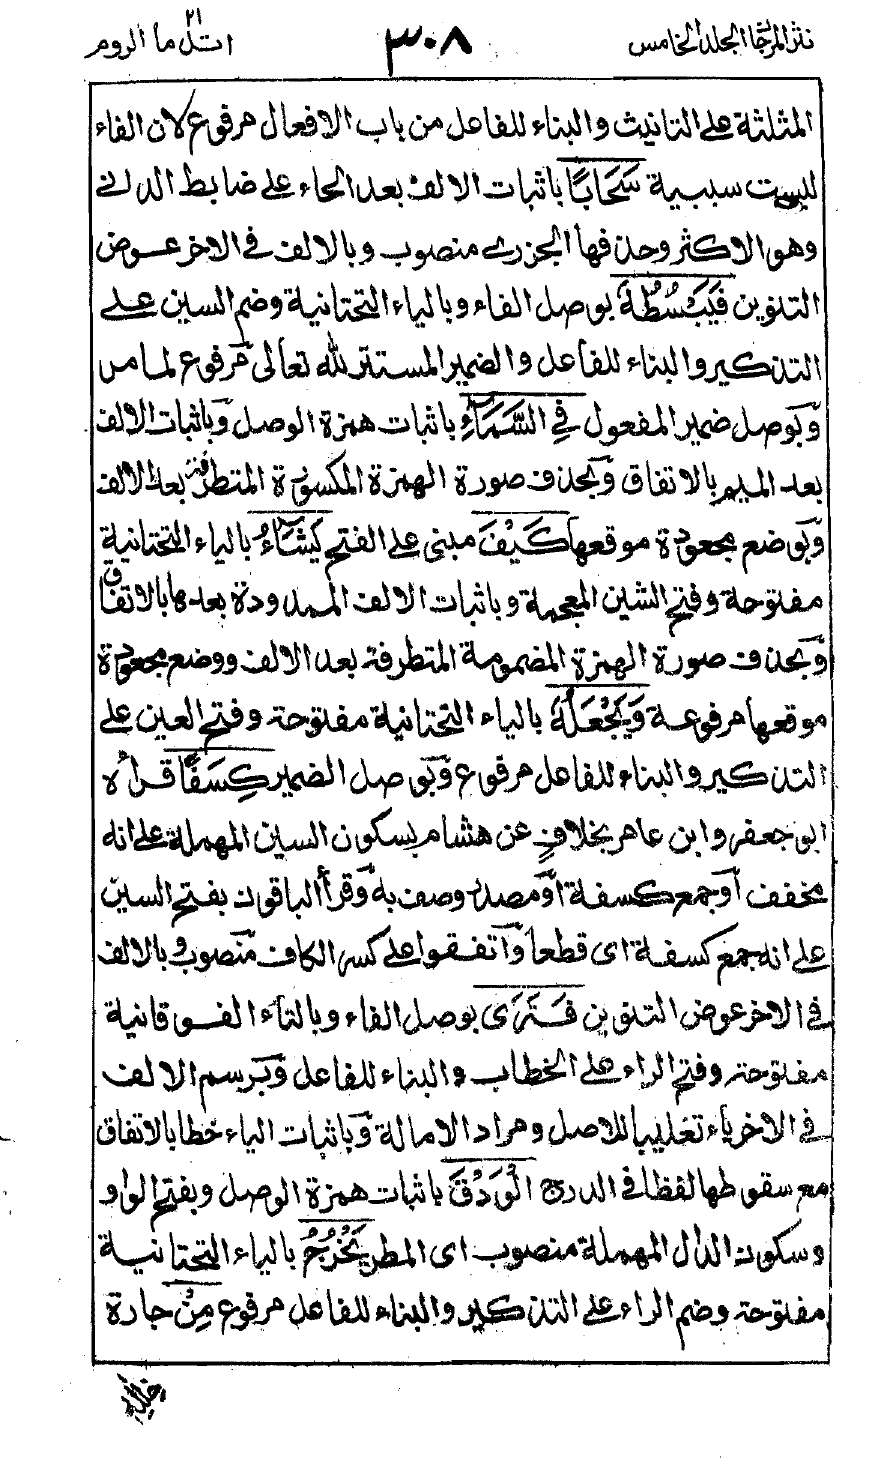 نثر المرجان المجلد الخامس
٣٠٨
اتل ما ٢١ الروم
المثلثة على التانيث والبناء للفاعل من باب الافعال مرفوع لان الفاء
ليست سببية سَحَابًا باثبات الالف بعد الحاء على ضابط الدانى
وهو الاكثر وحذفها الجزرى منصوب وبالالف فى الاخر عوض
التنوين فَيَبْسُطُهٗ بوصل الفاء وبالياء التحتانية وضم السين على
التذكير والبناء للفاعل والضمير المستتر لله تعالى مرفوع لما مر
وبوصل ضمير المفعول فِي السَّمَآءِ باثبات همزة الوصل وباثبات الالف
بعد الميم بالاتفاق وبحذف صورة الهمزة المكسورة المتطرفة بعد الالف
وبوضع مجعودة موقعها كَيْفَ مبنى على الفتح يَشَآءُ بالياء التحتانية
مفتوحة وفتح الشين المعجمة وباثبات الالف الممدودة بعدها بالاتفاق
وبحذف صورة الهمزة المضمومة المتطرفة بعد الالف ووضع مجعودة
موقعها مرفوعة وَيَجْعَلُهٗ بالياء التحتانية مفتوحة وفتح العين على
التذكير والبناء للفاعل مرفوع وبوصل الضمير كِسَفًا قرأه
ابو جعفر وابن عامر بخلاف عن هشام بسكون السين المهملة على انه
مخفف أو جمع كسفة او مصدر وصف به وقرأ الباقون بفتح السين
على انه جمع كسفة اى قطعا واتفقوا على كسر الكاف منصوب وبالالف
فى الاخر عوض التنوين فَتَرَى بوصل الفاء وبالتاء الفوقانية
مفتوحة وفتح الراء على الخطاب والبناء للفاعل وبرسم الالف
فى الاخر ياء تغليبا للاصل ومراد الامالة وباثبات الياء خطا بالاتفاق
مع سقوطها لفظا فى الدرج الْوَدْقَ باثبات همزة الوصل وبفتح الواو
وسكون الدال المهملة منصوب اى المطر يَخْرُجُ بالياء التحتانية
مفتوحة وضم الراء على التذكير والبناء للفاعل مرفوع مِنْ جارة